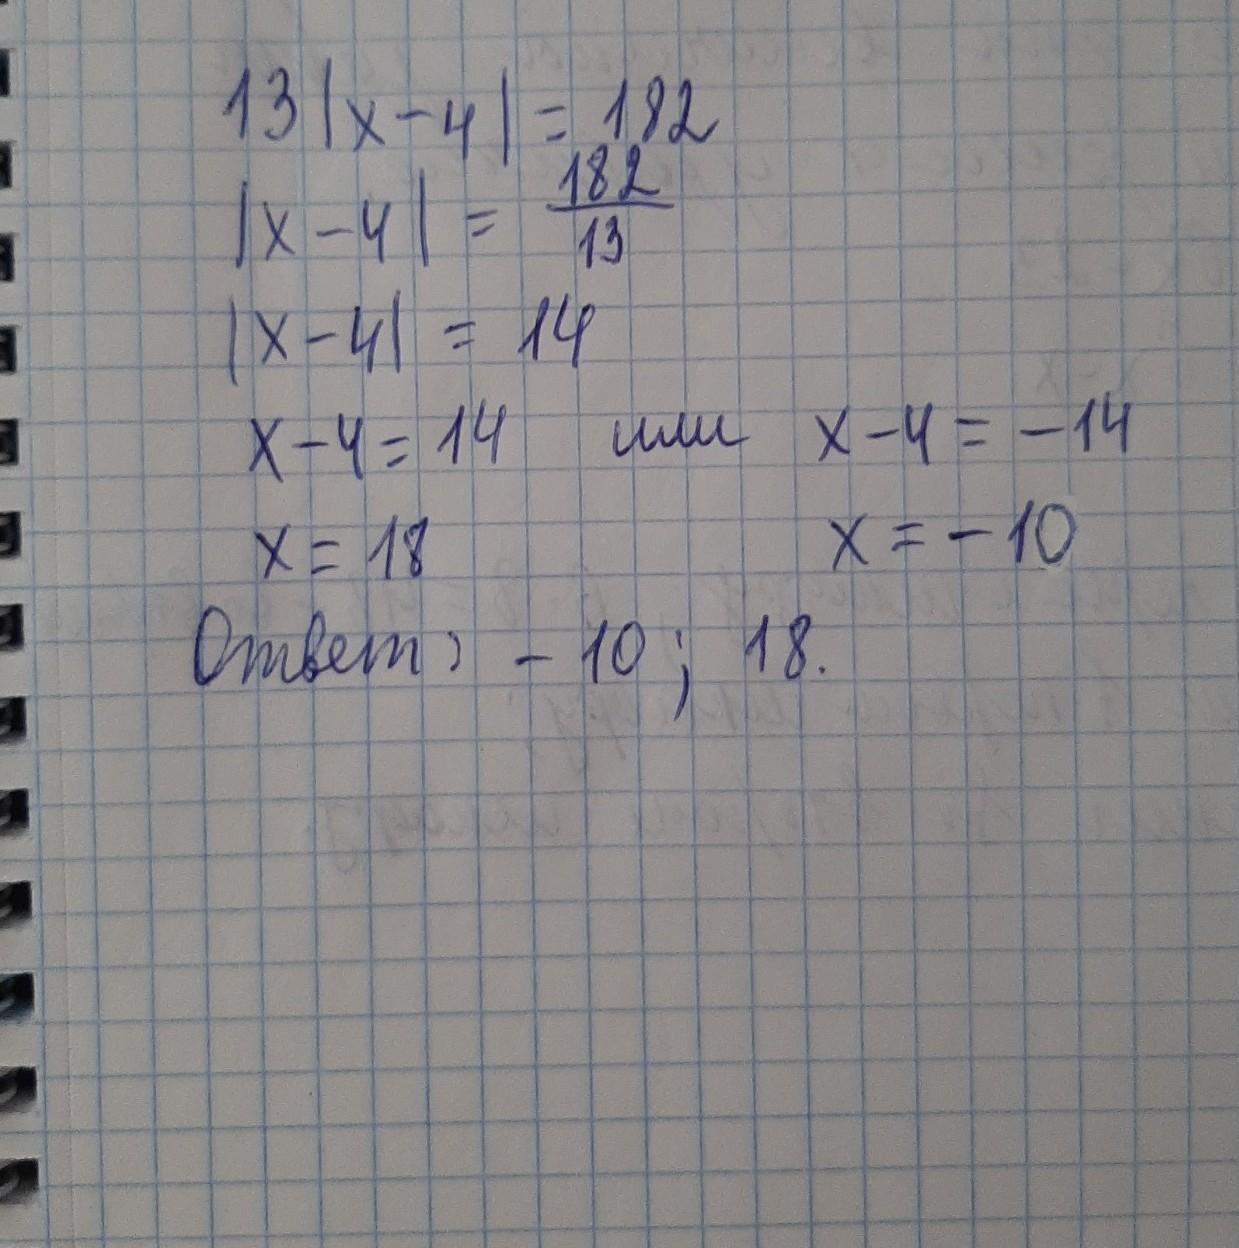 13|x-4| = 182
|x-4| = 182/13
|x-4| = 14
x-4=14 или x-4=-14
x=18 x=-10
Ответ: -10; 18.